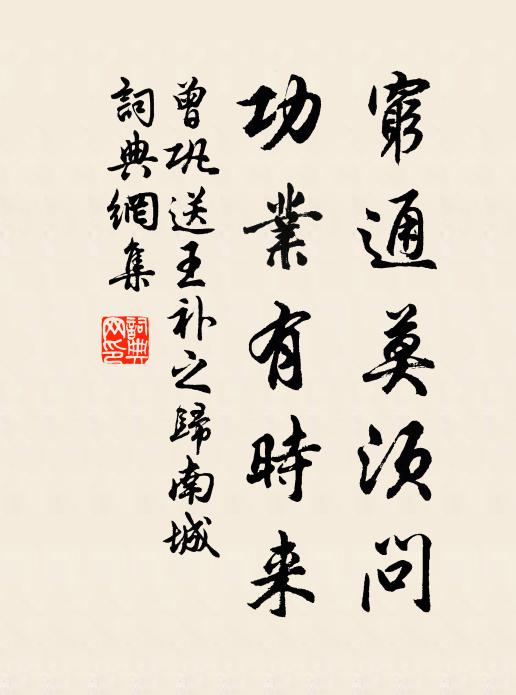 窮通莫須問
功業有時来
曾巩送王补之歸南城
詞典網集
詞典网印